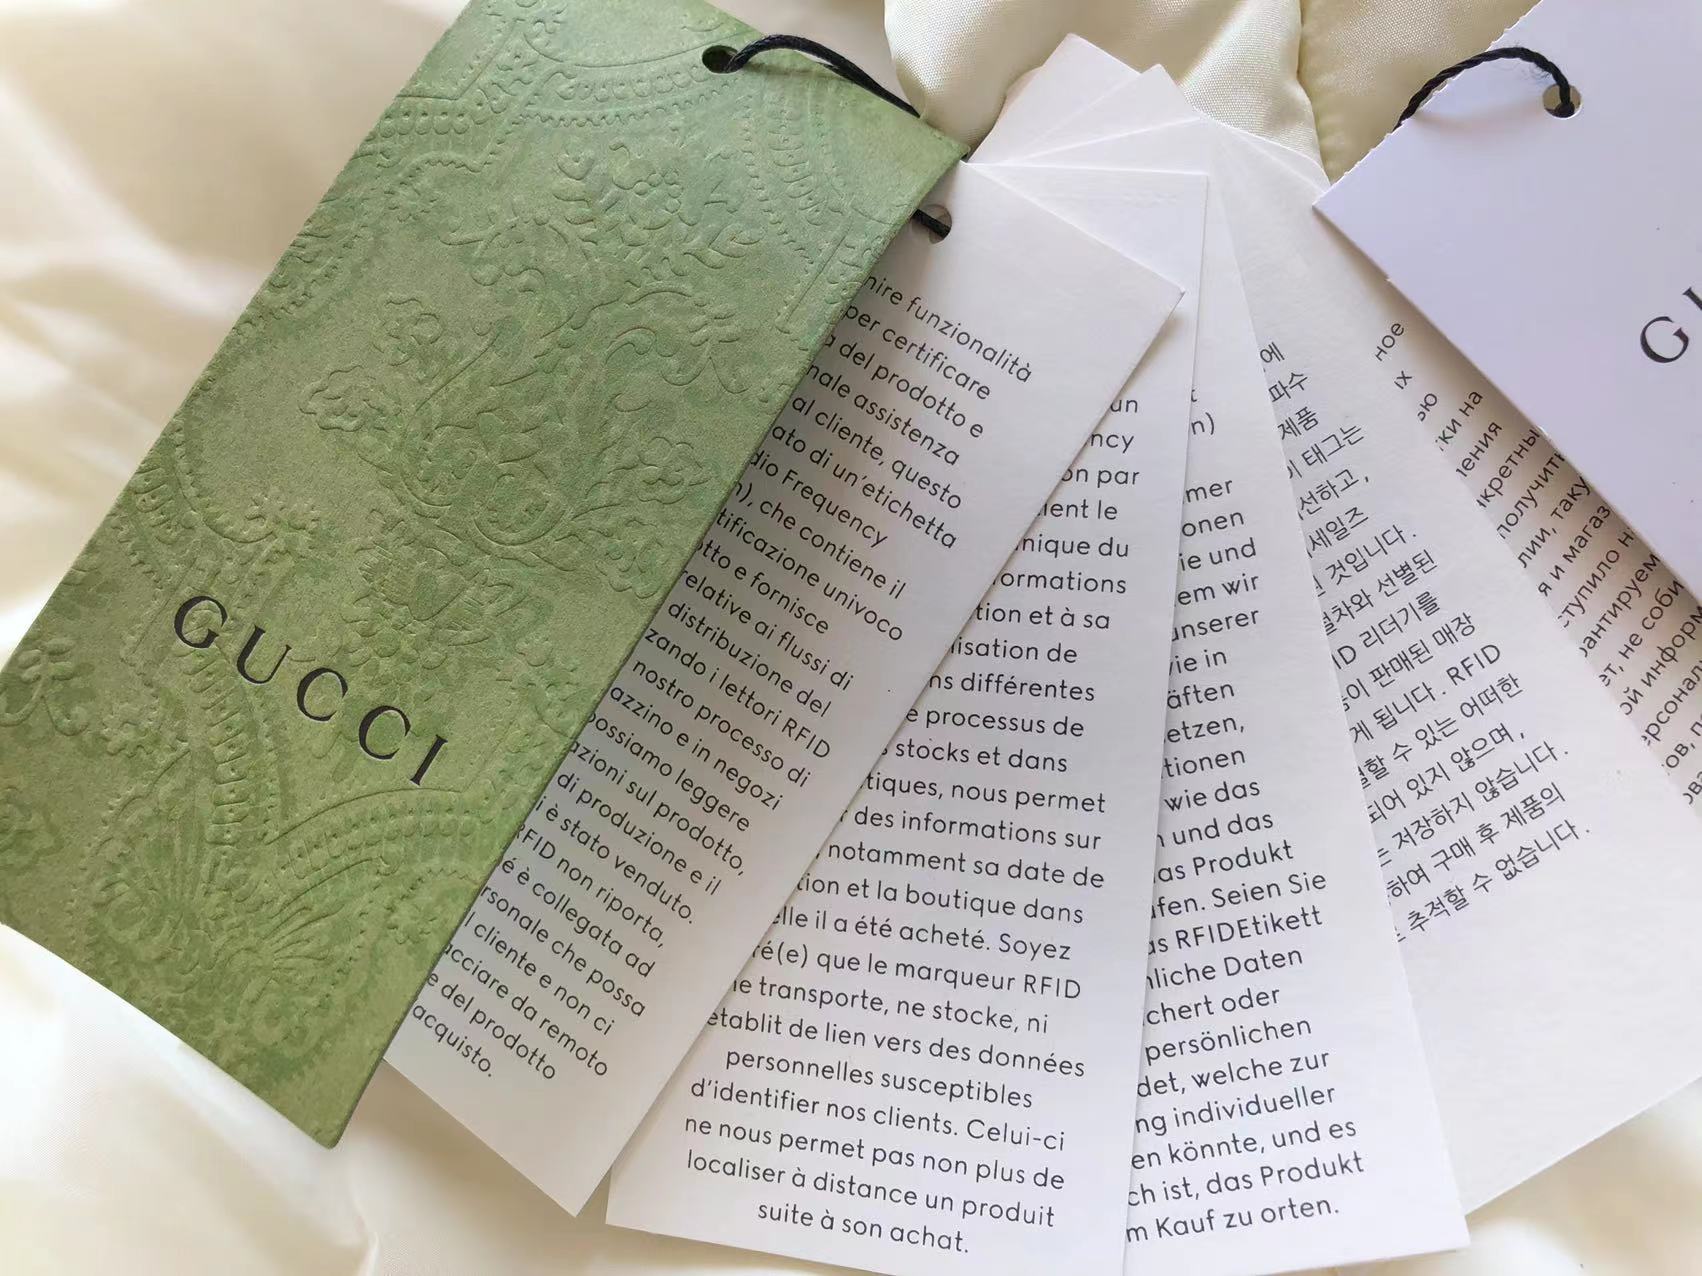 GUCCI
nire funzionalità
per certificare
del prodotto e
nale assistenza
al cliente, questo
ato di un'etichetta
dio Frequency
n), che contiene il
tificazione univoco
otto e fornisce
relative ai flussi di
distribuzione del
zando i lettori RFID
nostro processo di
azzino e in negozi
possiamo leggere
azioni sul prodotto,
di produzione e il
i è stato venduto.
RFID non riporta,
é è collegata ad
rsonale che possa
l cliente e non ci
acciare da remoto
e del prodotto
acquisto.
un
ncy
on par
ient le
nique du
ormations
tion et à sa
lisation de
ns différentes
e processus de
stocks et dans
tiques, nous permet
des informations sur
, notamment sa date de
tion et la boutique dans
elle il a été acheté. Soyez
ré(e) que le marqueur RFID
ne transporte, ne stocke, ni
établit de lien vers des données
personnelles susceptibles
d'identifier nos clients. Celui-ci
ne nous permet pas non plus de
localiser à distance un produit
suite à son achat.
n)
mer
onen
ie und
em wir
unserer
ie in
äften
etzen,
tionen
wie das
und das
as Produkt
fen. Seien Sie
as RFIDEtikett
nliche Daten
chert oder
persönlichen
det, welche zur
ng individueller
en könnte, und es
ch ist, das Produkt
m Kauf zu orten.
에
파수
제품
이 태그는
선하고,
세일즈
것입니다.
절차와 선별된
ID 리더기를
이 판매된 매장
게 됩니다. RFID
별할 수 있는 어떠한
되어 있지 않으며,
저장하지 않습니다.
하여 구매 후 제품의
추적할 수 없습니다.
ное
их
ью
ки на
ения
нкретны
получить
лии, таку
я и магаз
ступило н
рантируем
ет, не соби
ой информ
ерсонал
ов, п
G